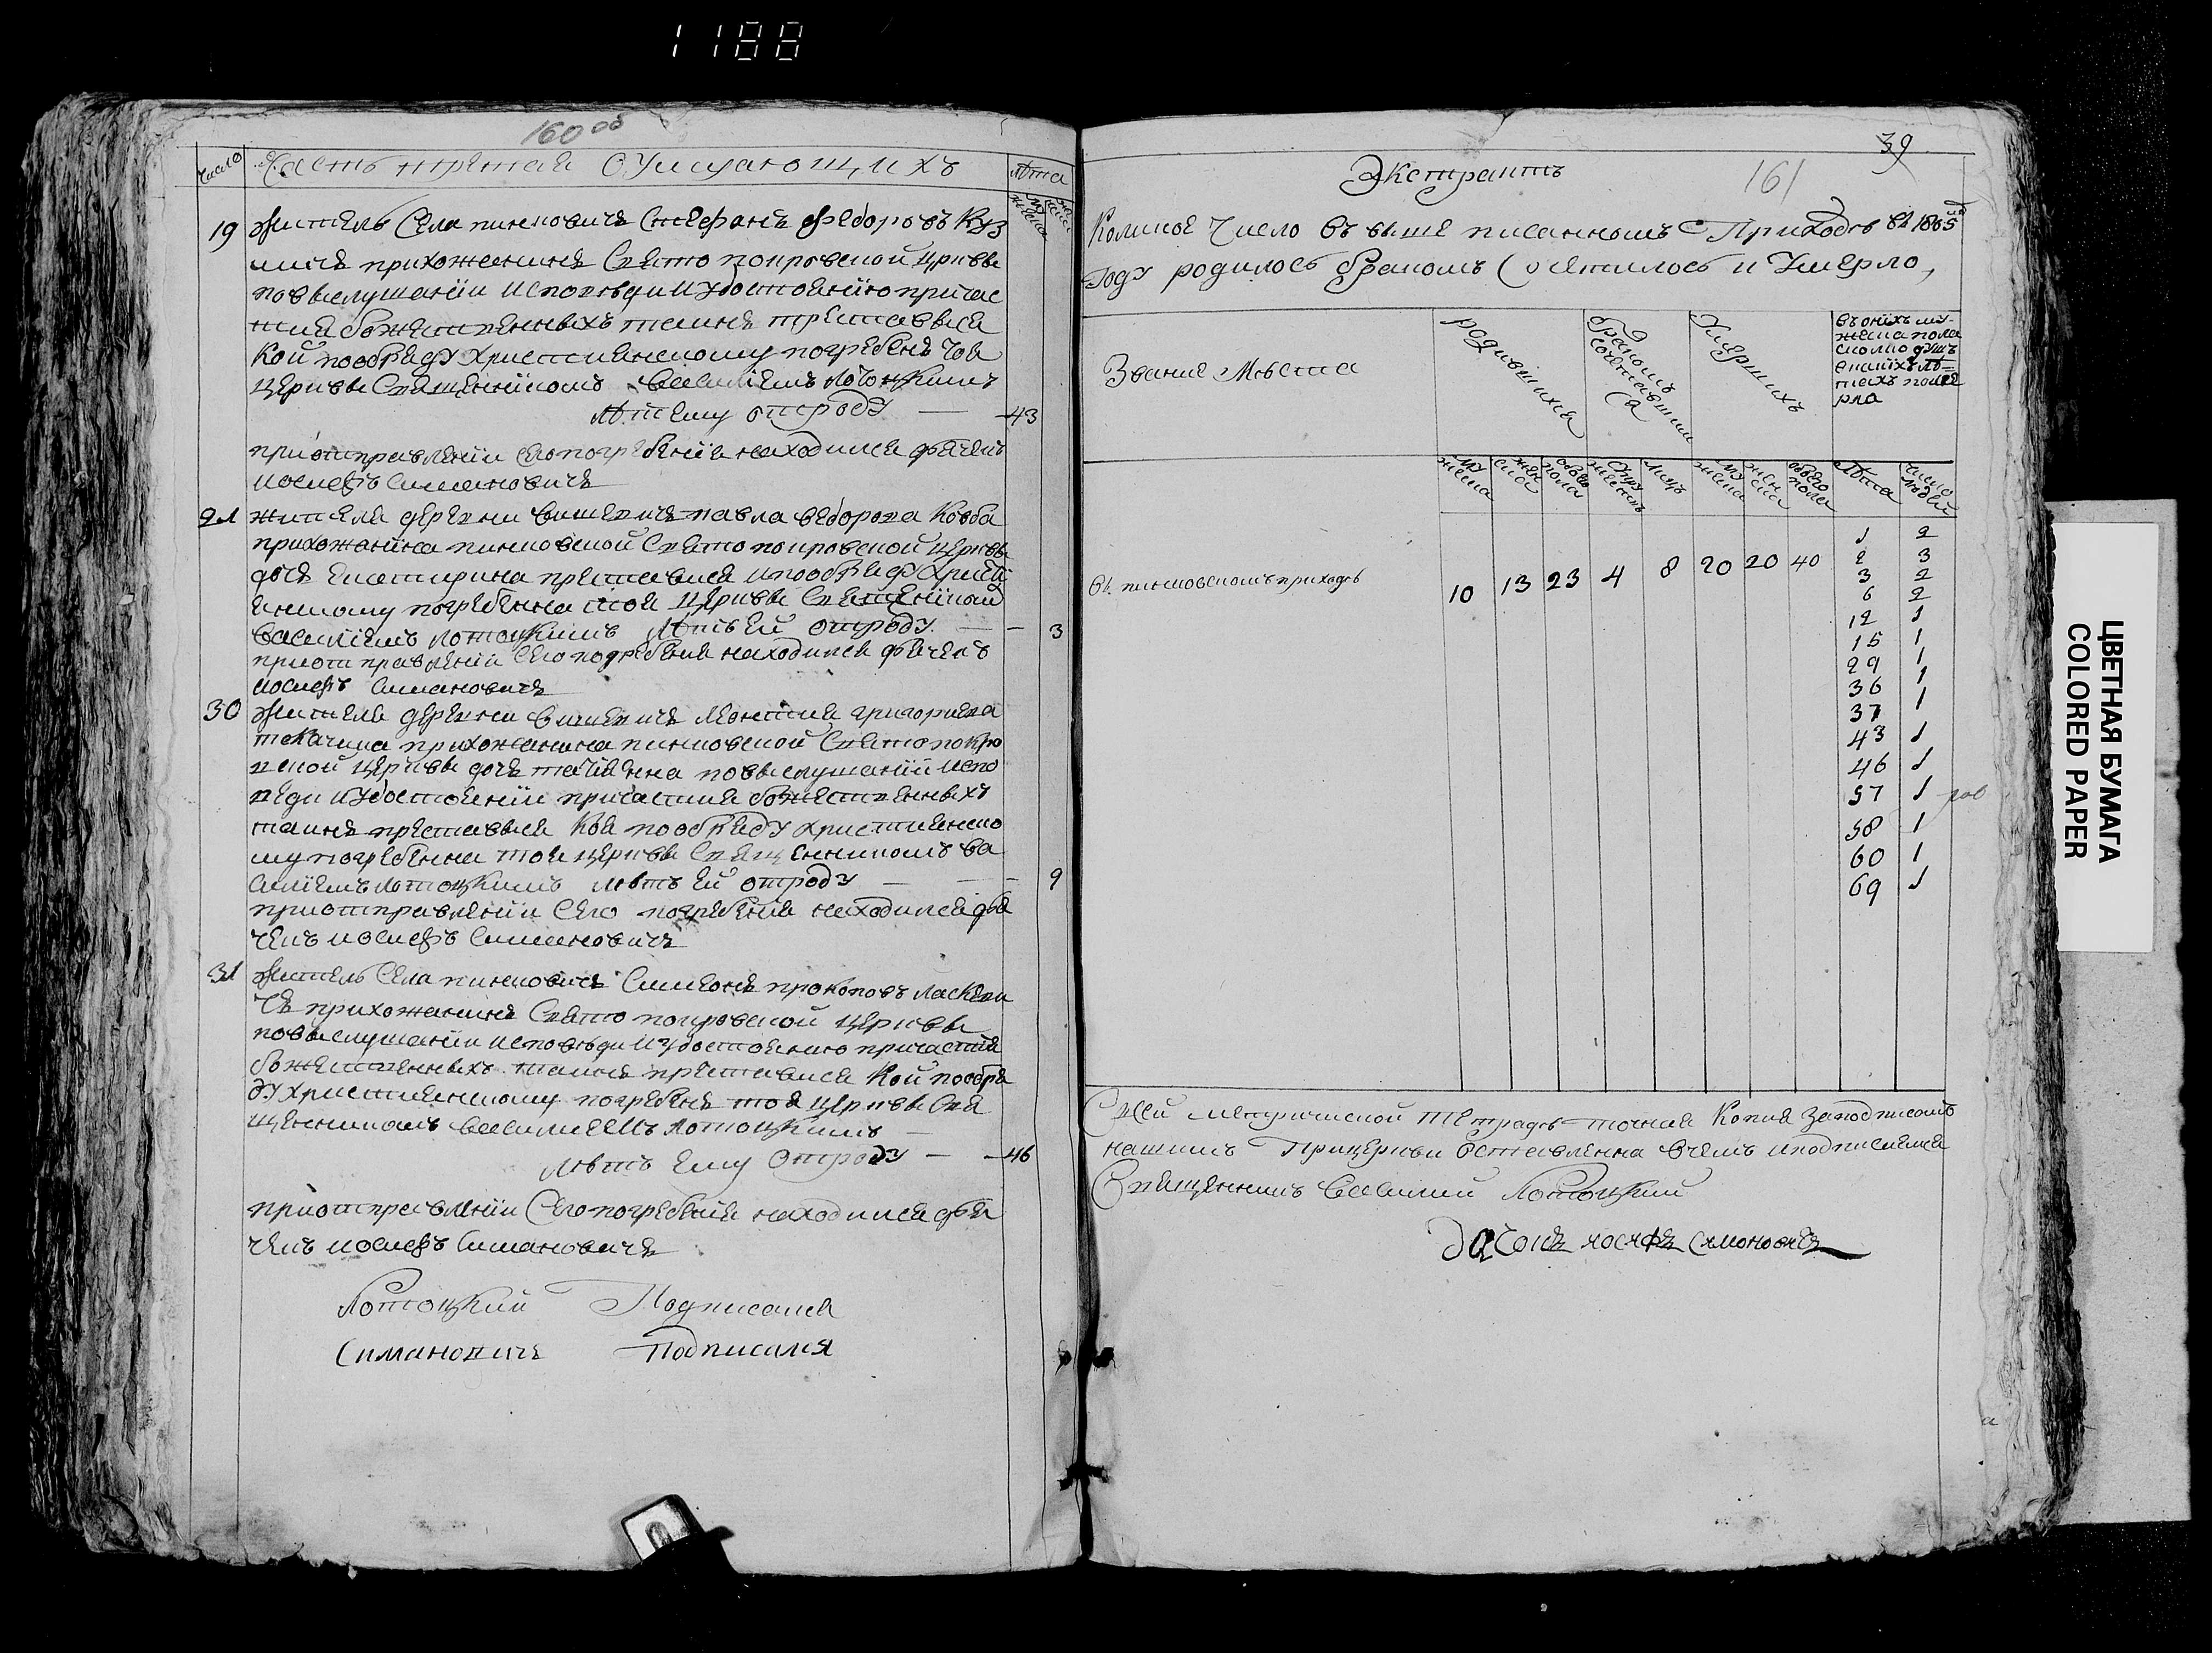 1188
160 об
Число Часть третая О Умирающихъ лѣта
мужеска женска
19 житель Села пинковичъ Стефанъ Федоровъ Куз
мичъ прихожанинъ Свято покровской Церквы
повыслушаніи исповѣди и Удостоѣнію причас
тия божественныхъ таинъ преставися
Кой пообряду Христиенскому погребенъ тоя
Церквы Священіком Василіемъ Лотоцкимъ
лѣтъ ему отроду — 43
приотправленіи Сего погребенія находился дьячекъ
иосифъ Симановичъ
21 жителя деревни вишевичъ павла ведорова Ковба
прихожанина пинковской Свято покровской Церквы
дочъ Екатирина преставися ипообряду Христи
енскому погребенна тоя Церквы Священіком
Василіемъ Лотоцкимъ лѣтъ Ей отроду — 3
приотправленіи Сего погребения находился дьячекъ
иосифъ Симановичъ
30 жителя деревни вишевичъ григориева
прихожанина пинковской Святопокро
вской Церквы дочъ татиянна повыслушаніи испо
веди и Удостоенію причастия божественныхъ
таинъ преставися Коя пообряду христиенско
му погребенна тоя церквы Священникомъ Ва
силіемъ Лотоцкимъ лѣтъ Ей отроду — 9
приотправленіи Сего погребения находился дья
чекъ иосифъ Симановичъ
31 житель Села пинковичъ Симеонъ прокоповъ Ласкеви
чъ прихожанинъ Свято покровской Церквы
повыслушаніи исповѣди и Удостоѣнию причастия
божественныхъ таинъ преставися Кой пообря
ду Христиенскому погребенъ тоя Церквы Свя
щенникомъ Василиемъ Лотоцкимъ
Лѣтъ Ему Отроду — 46
приотправленіи Сего погребения находился дья
чекъ иосифъ Симановичъ
Лотоцкий Подписался
Симановичъ Подписался
39
Экстрактъ 161
Коликое Число въ выше писанномъ Приходѣ
году родилось бракомъ Сочетилось и Умерло,
Звание Мѣста
родившихся
бракомъ сочетавшии ся
Умершихъ
въ онихъ му-
жеска пола
сколко душъ
вкаких лѣ-
тахъ поме
рла
мужеска женска обоего пола Супружествъ лицъ мужеска женска обоего пола Лѣта число людей
Въ пинковскомъ приходѣ 10 13 23 4 8 20 20 40
1 2
2 3
3 2
6 2
12 1
15 1
29 1
36 1
37 1
43 1
46 1
57 1
58 1
60 1
69 1
Сѣей Метрической тетрадѣ точная Копия Заподписомъ
нашимъ Прицеркви Оставленна вчемъ иподписался
Священникъ Василий Лотоцкий
Дячокъ иосифъ Симоновичъ
ЦВЕТНАЯ БУМАГА
COLORED PAPER